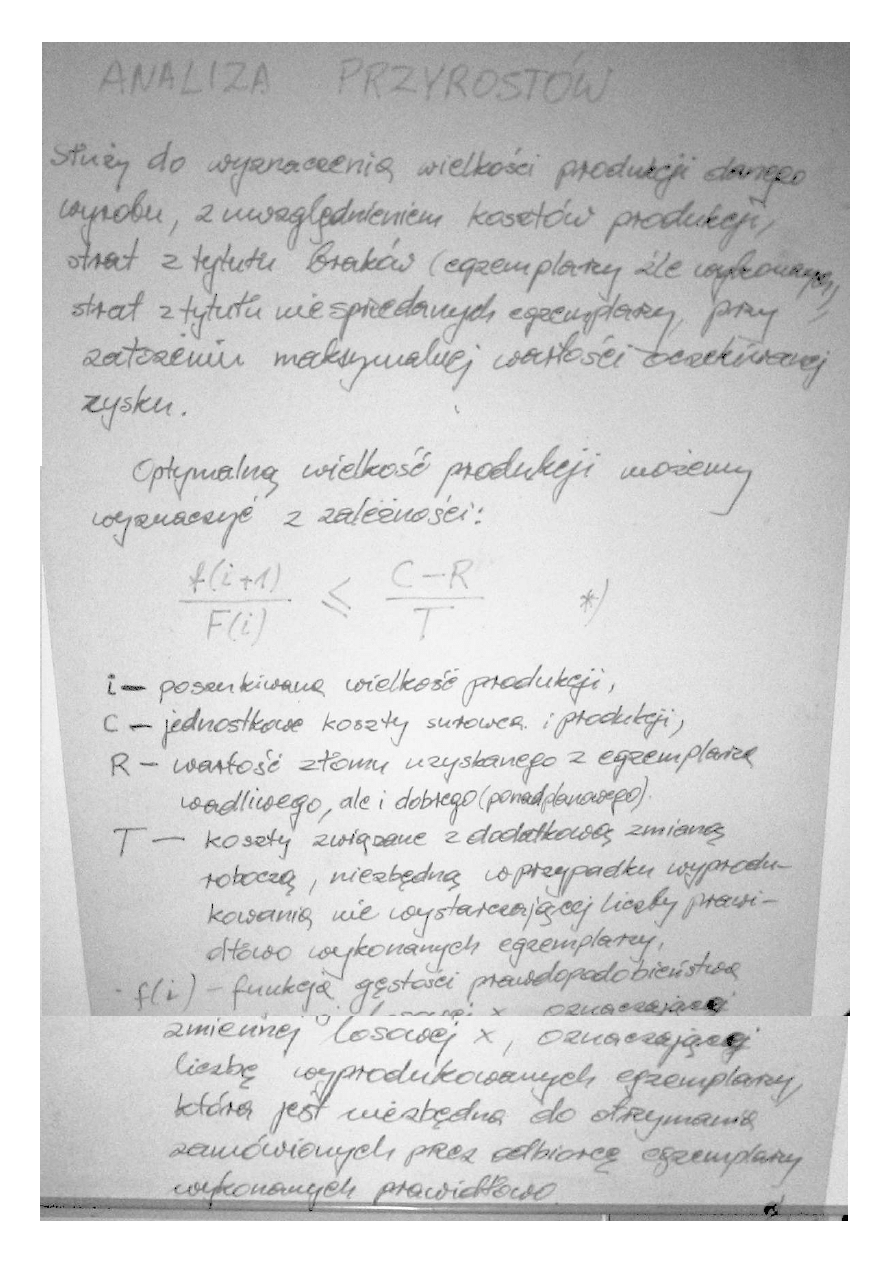 ANALIZA PRZYROSTÓW
Służy do wyznaczenia wielkości produkcji danego
wyrobu, z uwzględnieniem kosztów produkcji,
strat z tytułu braków (egzemplarzy źle wykonanych),
strat z tytułu niesprzedanych egzemplarzy, przy
założeniu maksymalnej wartości oczekiwanej
zysku.
Optymalną wielkość produkcji możemy
wyznaczyć z zależności:
f(i+1) / F(i) ≤ (C-R) / T *)
i — poszukiwana wielkość produkcji,
C — jednostkowe koszty surowca i produkcji,
R — wartość złomu uzyskanego z egzemplarza
wadliwego, ale i dobrego (ponadplanowego).
T — koszty związane z dodatkową zmianą
roboczą, niezbędną w przypadku wyprodu-
kowania nie wystarczającej liczby prawi-
dłowo wykonanych egzemplarzy,
f(i) — funkcja gęstości prawdopodobieństwa
zmiennej losowej x, oznaczającej
liczbę wyprodukowanych egzemplarzy,
która jest niezbędna do otrzymania
zamówionych przez odbiorcę egzemplarzy
wykonanych prawidłowo